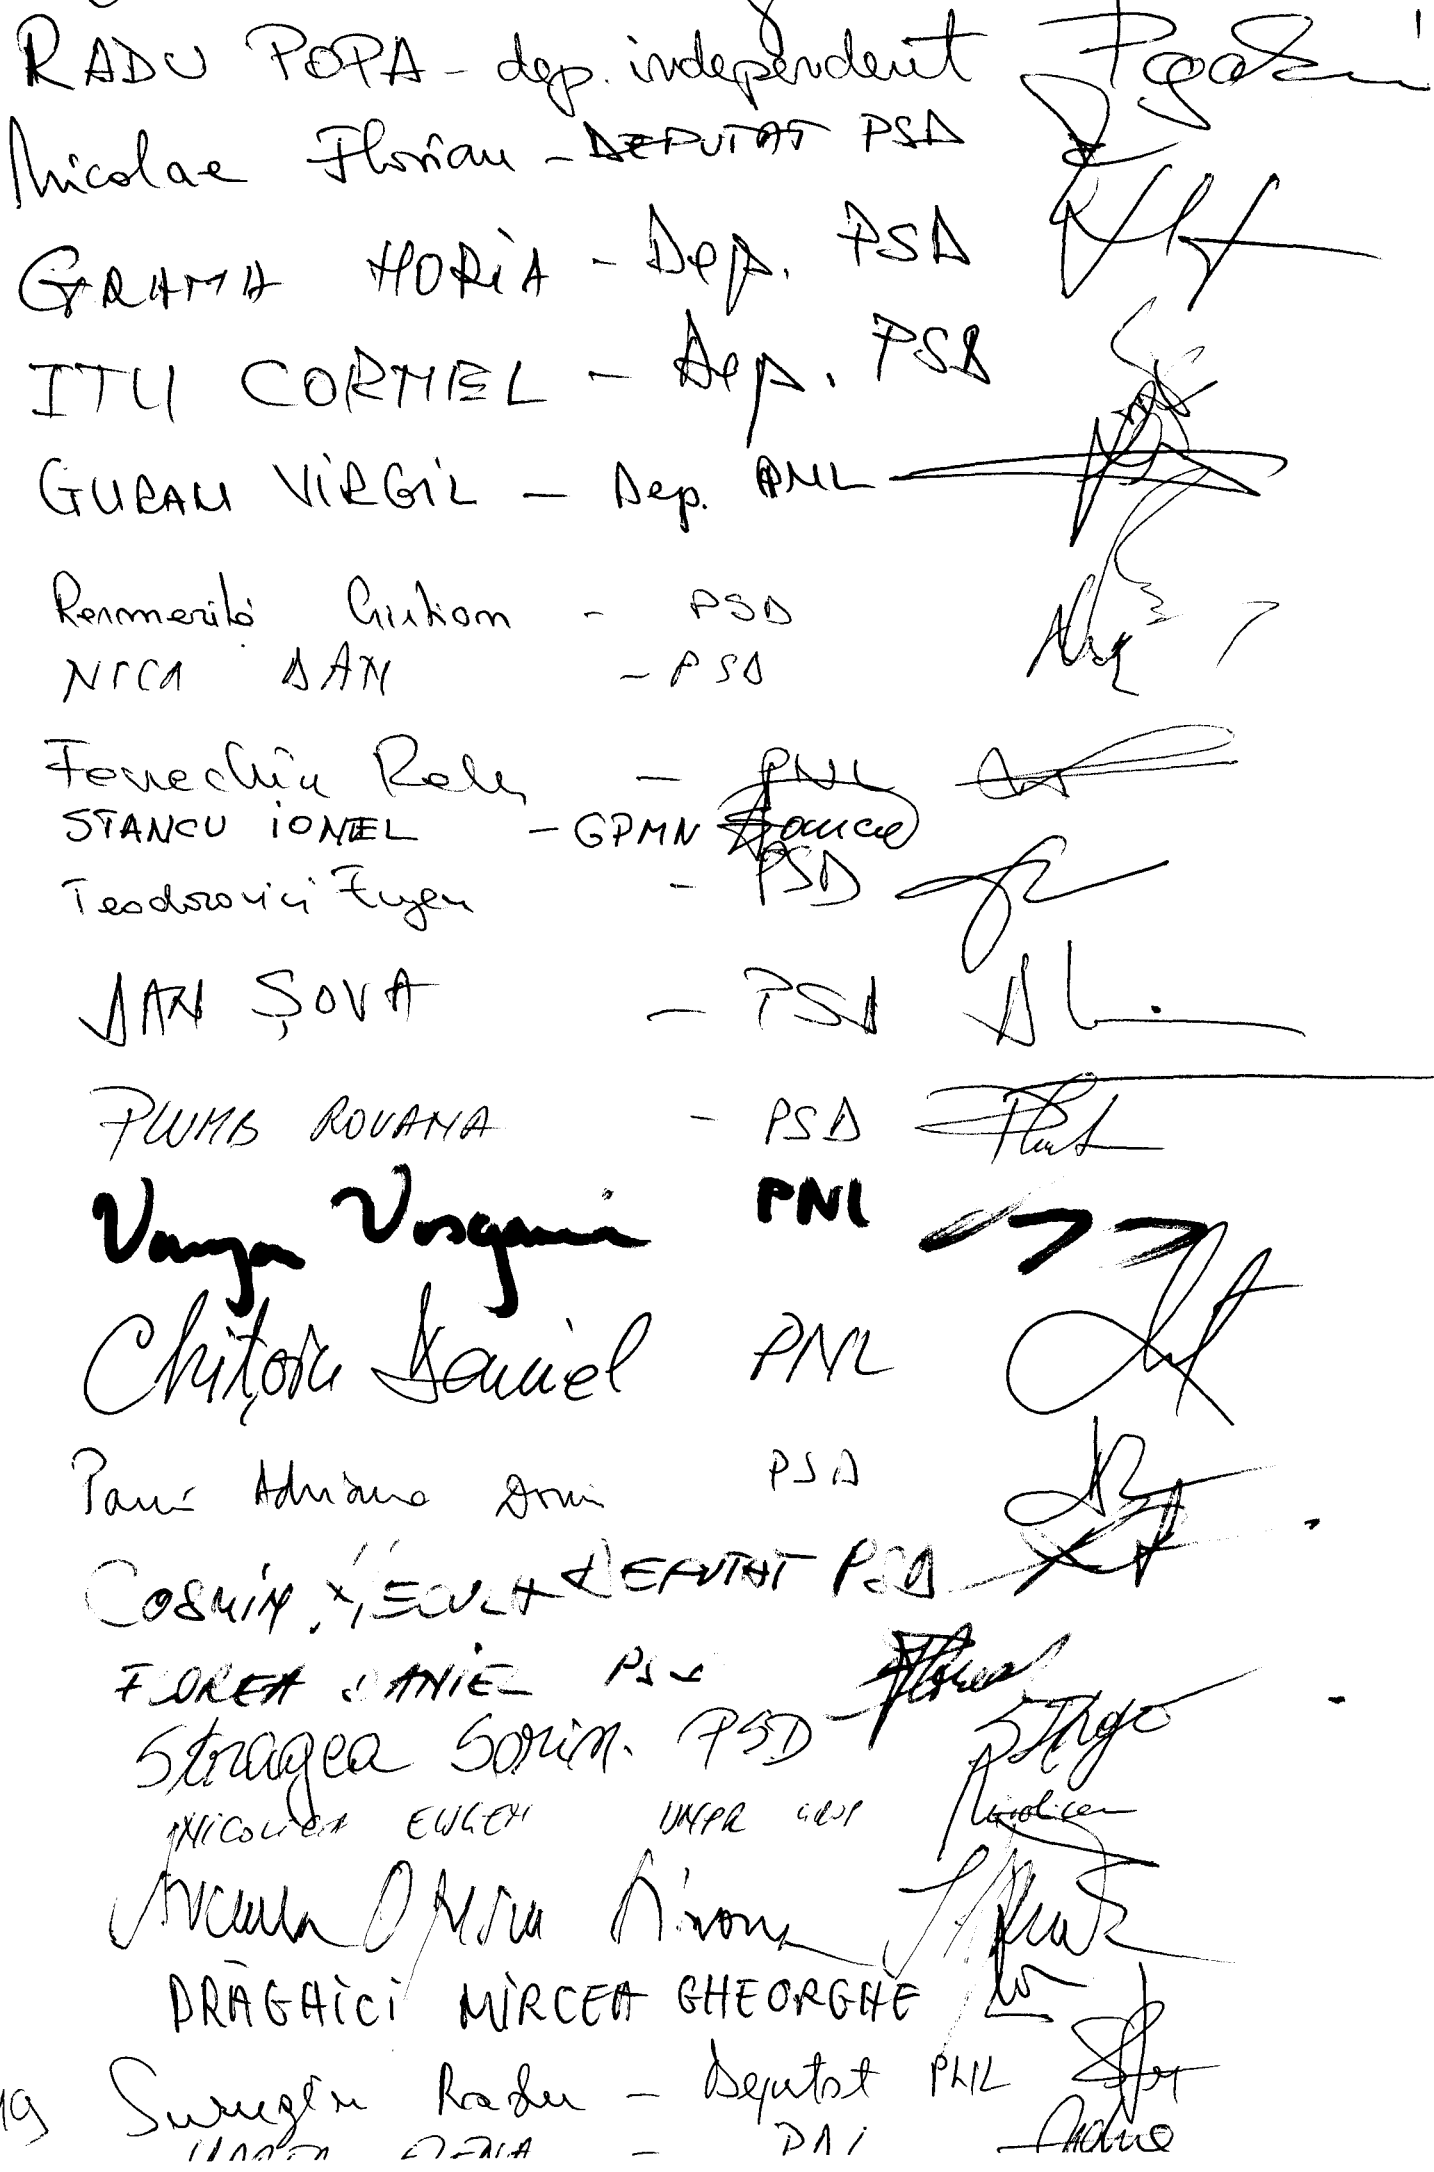 RADU POPA - dep. independent
Nicolae Florian - DEPUTAT PSD
GRAMA HORIA - Dep. PSD
ITU CORNEL - Dep. PSD
GURAN VIRGIL - Dep. PNL
PSD
NICA DAN - PSD
Fenechiu Relu - PNL
STANCU IONEL - GPMN Stancu
Teodorovici Eugen - PSD
DAN ȘOVA - PSD
PLUMB ROVANA - PSD
Varujan Vosganian PNL
Chițoiu Daniel PNL
Pană Adriana Doina PSD
COSMIN NECULA DEPUTAT PSD
FLOREA DANIEL PSD
Stragea Sorin. PSD
NICOLICEA EUGEN UNPR GRUP
DRĂGHICI MIRCEA GHEORGHE
19 Surugiu Radu - Deputat PNL